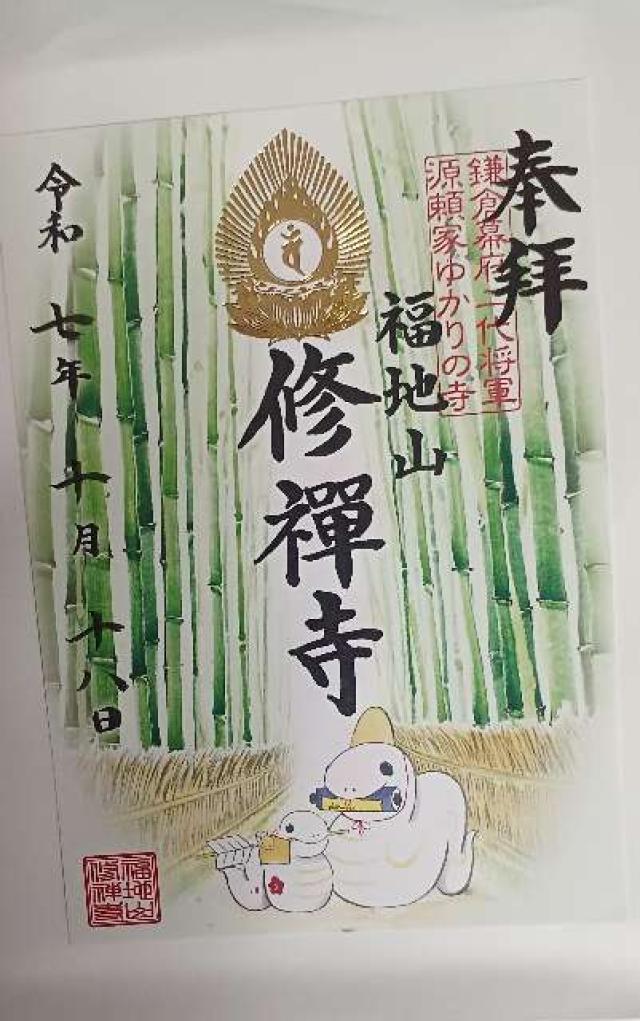 奉拝
鎌倉幕府二代将軍
源頼家ゆかりの寺
福地山
修禪寺
令和七年十月十八日
福地山
修禅寺